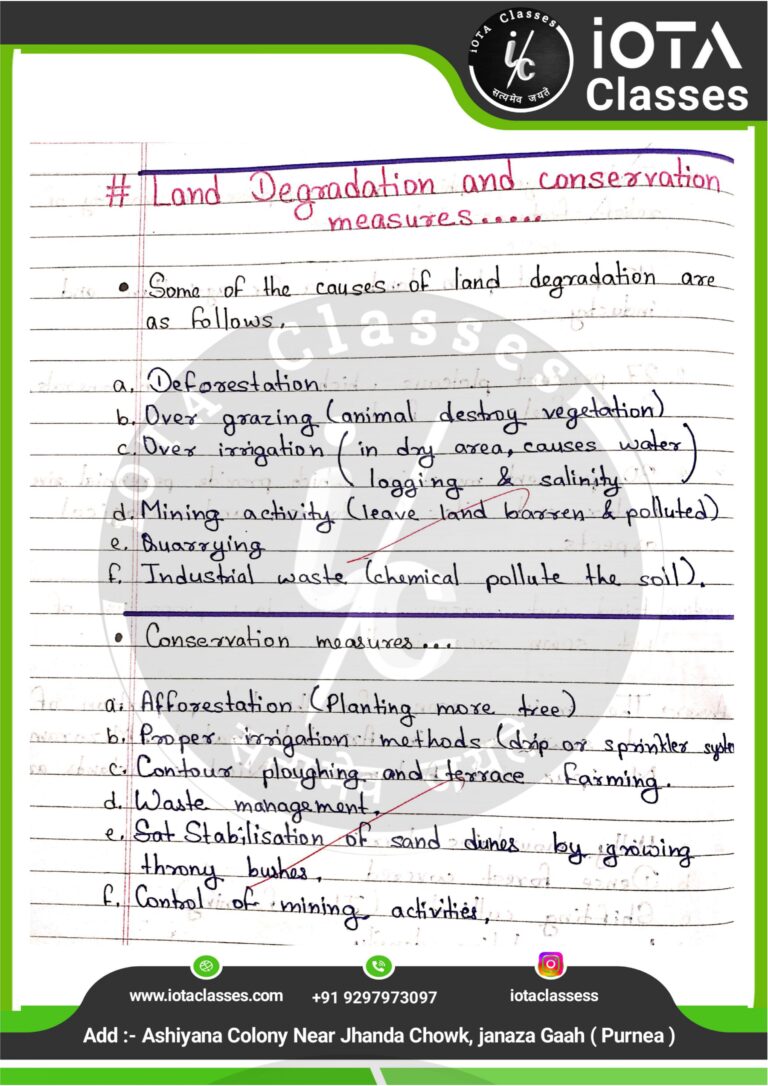 iOTA Classes
सत्यमेव जयते
iOTA
Classes
# Land Degradation and conservation
measures.....
• Some of the causes of land degradation are
as follows.
a. Deforestation
b. Over grazing (animal destroy vegetation)
c. Over irrigation (in dry area, causes water
logging & salinity)
d. Mining activity (leave land barren & polluted)
e. Quarrying
f. Industrial waste (chemical pollute the soil).
• Conservation measures...
a. Afforestation (Planting more tree)
b. Proper irrigation methods (drip or sprinkler syste
c. Contour ploughing and terrace farming.
d. Waste management.
e. Sat Stabilisation of sand dunes by growing
throny bushes.
f. Control of mining activities,
iOTA Classes
सत्यमेव जयते
www.iotaclasses.com +91 9297973097 iotaclassess
Add :- Ashiyana Colony Near Jhanda Chowk, janaza Gaah ( Purnea )